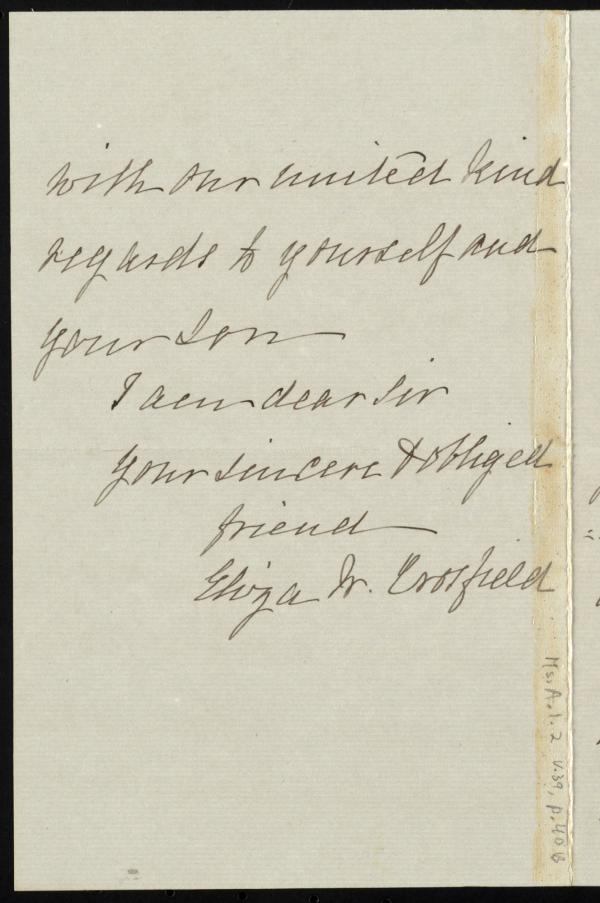 with our united kind
regards to yourself and
your son
I am dear sir
your sincere & obliged
friend
Eliza W. Crosfield
Ms. A. 1. 2 v.39, p.40B